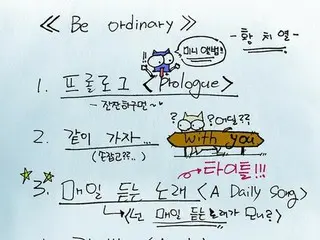 ≪ Be ordinary ≫
- 황치열 -
미니앨범!!
1. 프롤로그 < Prologue >
- 잔잔하구먼~
??어딨??
2. 같이 가자... with you
(손잡고??..)
타이틀!!!
3. 매일 듣는 노래 < A Daily Song >
매일 듣는 노래가 모니?